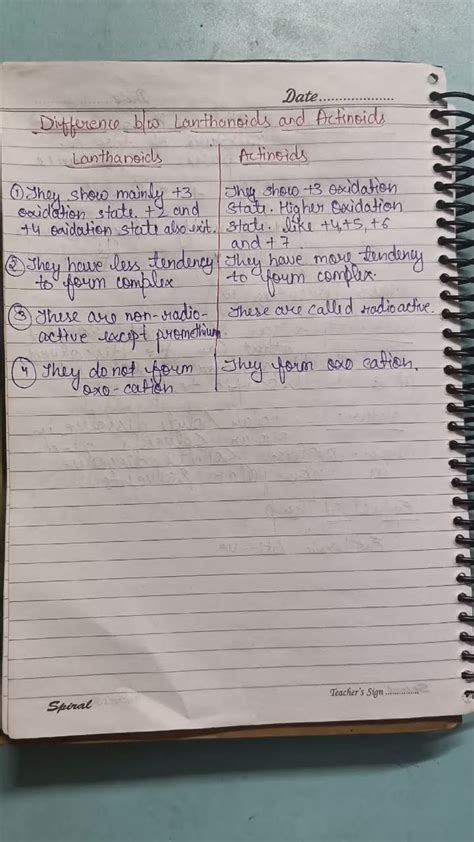 Date....................
Difference b/w Lanthanoids and Actinoids
Lanthanoids
Actinoids
① They show mainly +3
oxidation state. +2 and
+4 oxidation state also exit.
They show +3 oxidation
state. Higher Oxidation
state. like +4,+5, +6
and +7.
② They have less tendency
to form complex
They have more tendency
to form complex.
③ These are non-radio-
active except promethium.
These are called radioactive.
④ They do not form
oxo-cation
They form oxo cation.
Spiral
Teacher's Sign ..............